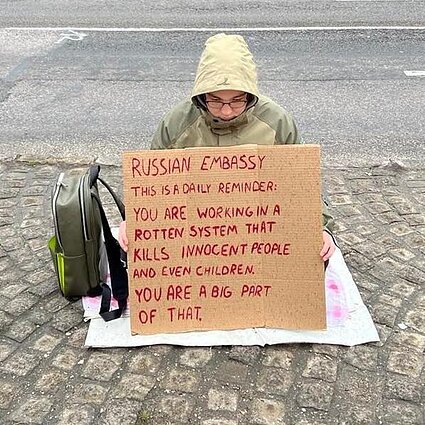 RUSSIAN EMBASSY
THIS IS A DAILY REMINDER:
YOU ARE WORKING IN A
ROTTEN SYSTEM THAT
KILLS INNOCENT PEOPLE
AND EVEN CHILDREN.
YOU ARE A BIG PART
OF THAT.